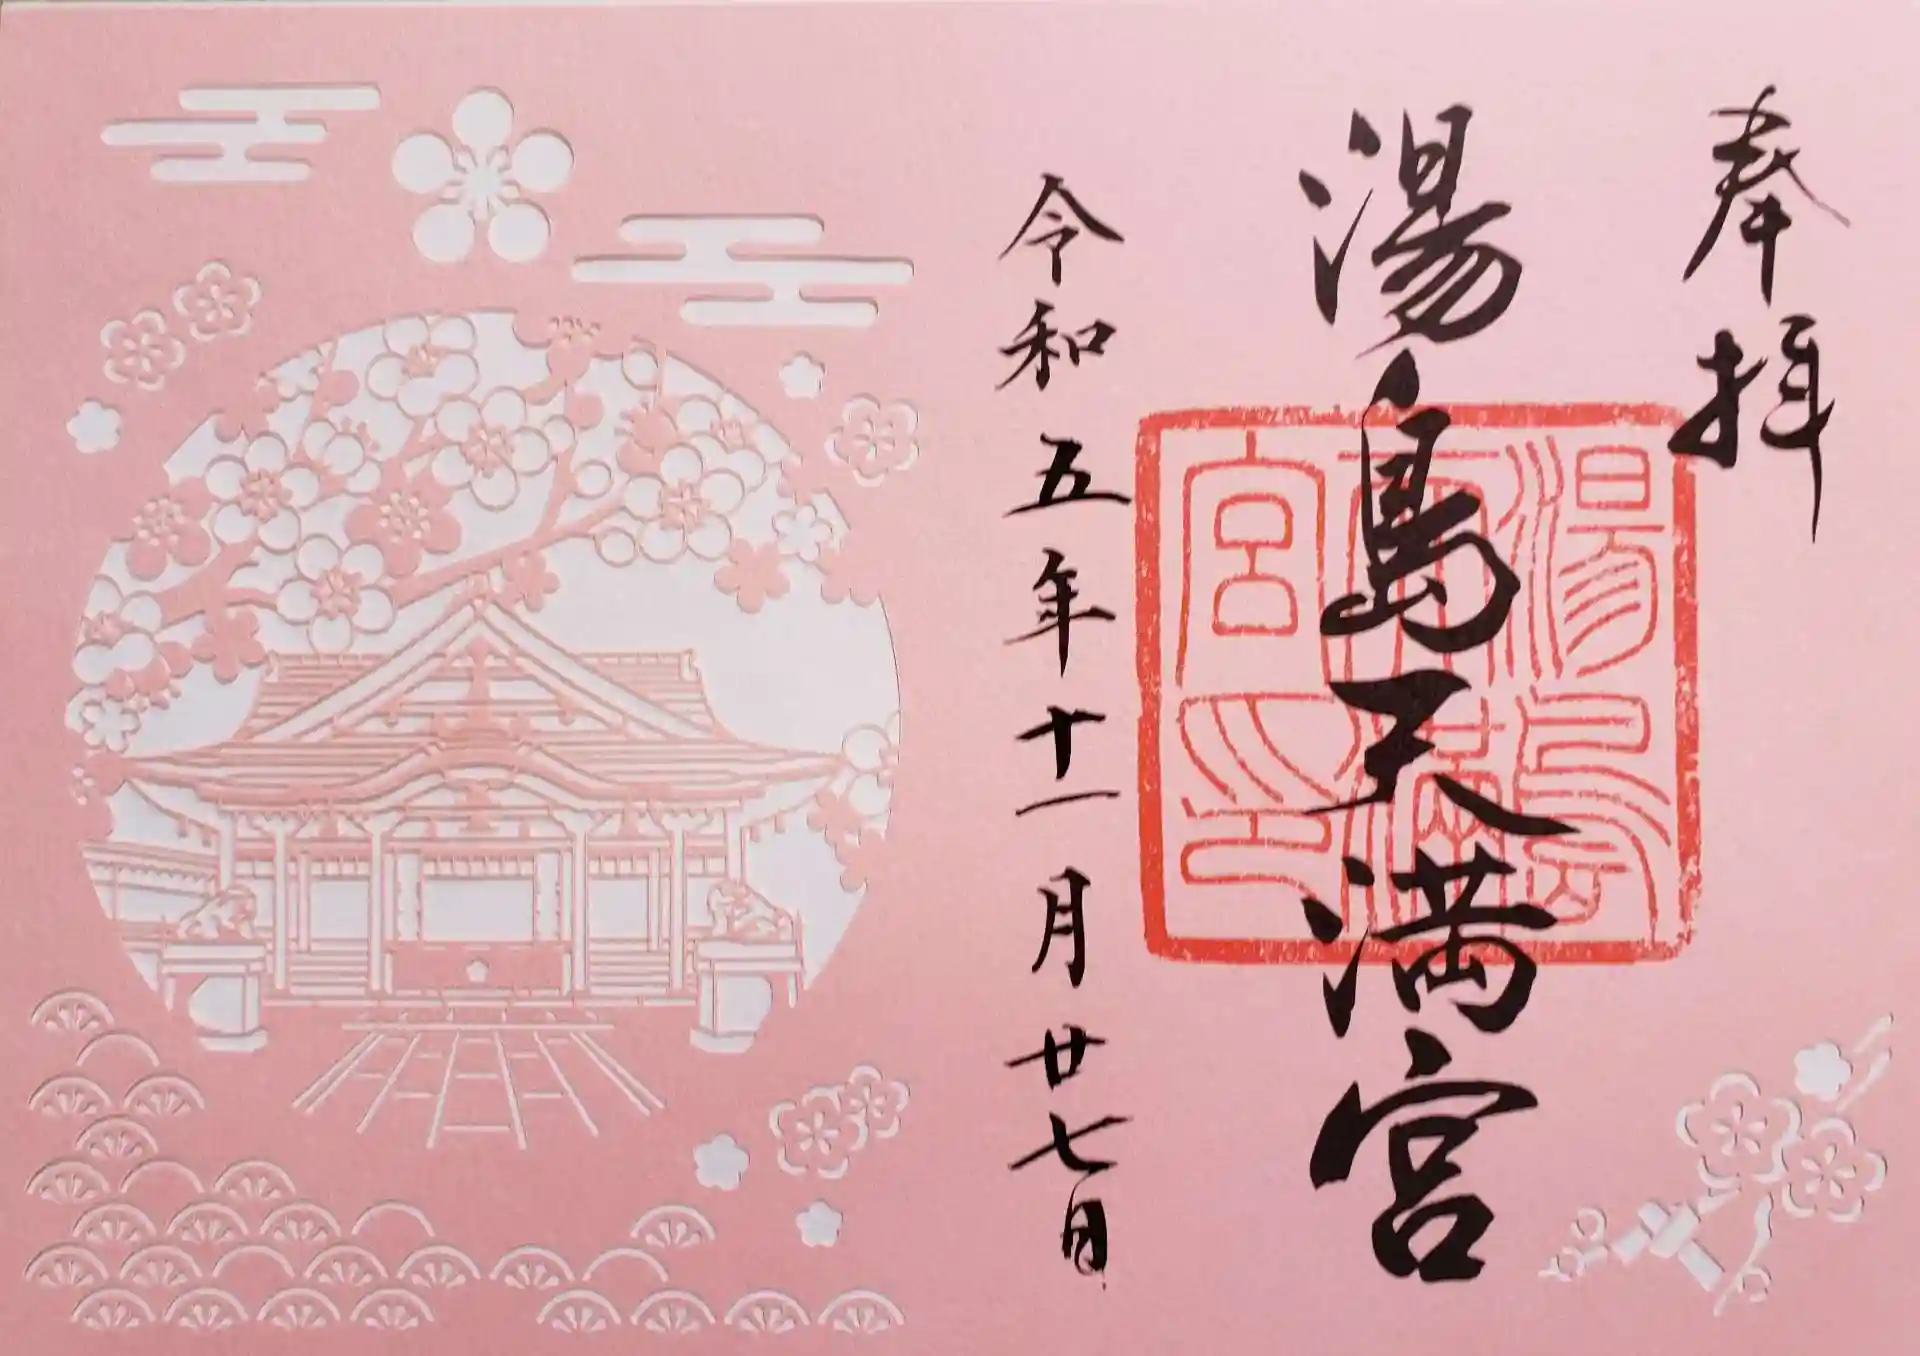 奉拝
湯島天満宮
湯島天満宮印
令和五年十一月廿七日